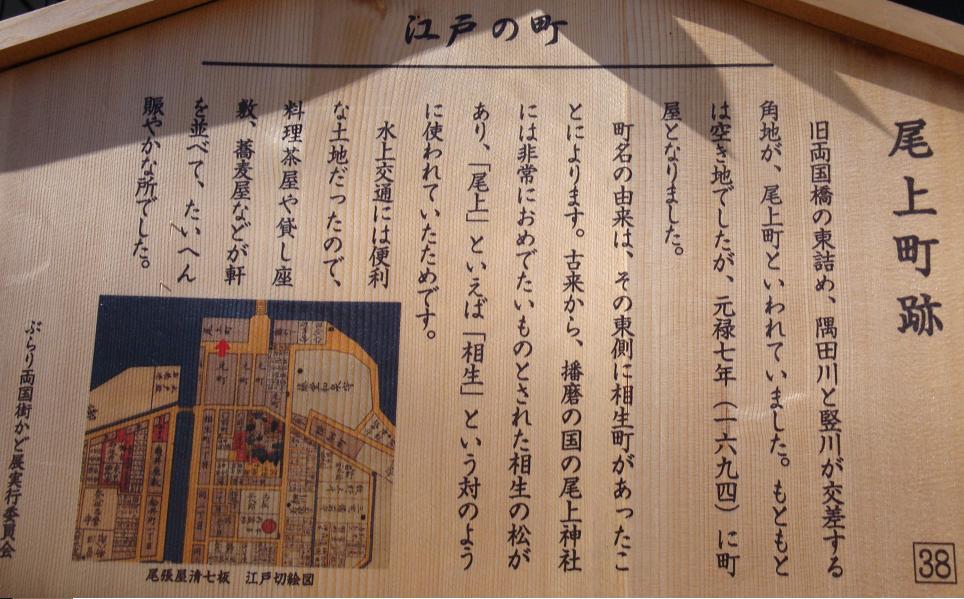 江戸の町
尾上町跡
旧両国橋の東詰め、隅田川と竪川が交差する
角地が、尾上町といわれていました。もともと
は空き地でしたが、元禄七年（一六九四）に町
屋となりました。
町名の由来は、その東側に相生町があったこ
とによります。古来から、播磨の国の尾上神社
には非常におめでたいものとされた相生の松が
あり、「尾上」といえば「相生」という対のよう
に使われていたためです。
水上交通には便利
な土地だったので、
料理茶屋や貸し座
敷、蕎麦屋などが軒
を並べて、たいへん
賑やかな所でした。
尾張屋清七板　江戸切絵図
ぶらり両国街かど展実行委員会
38